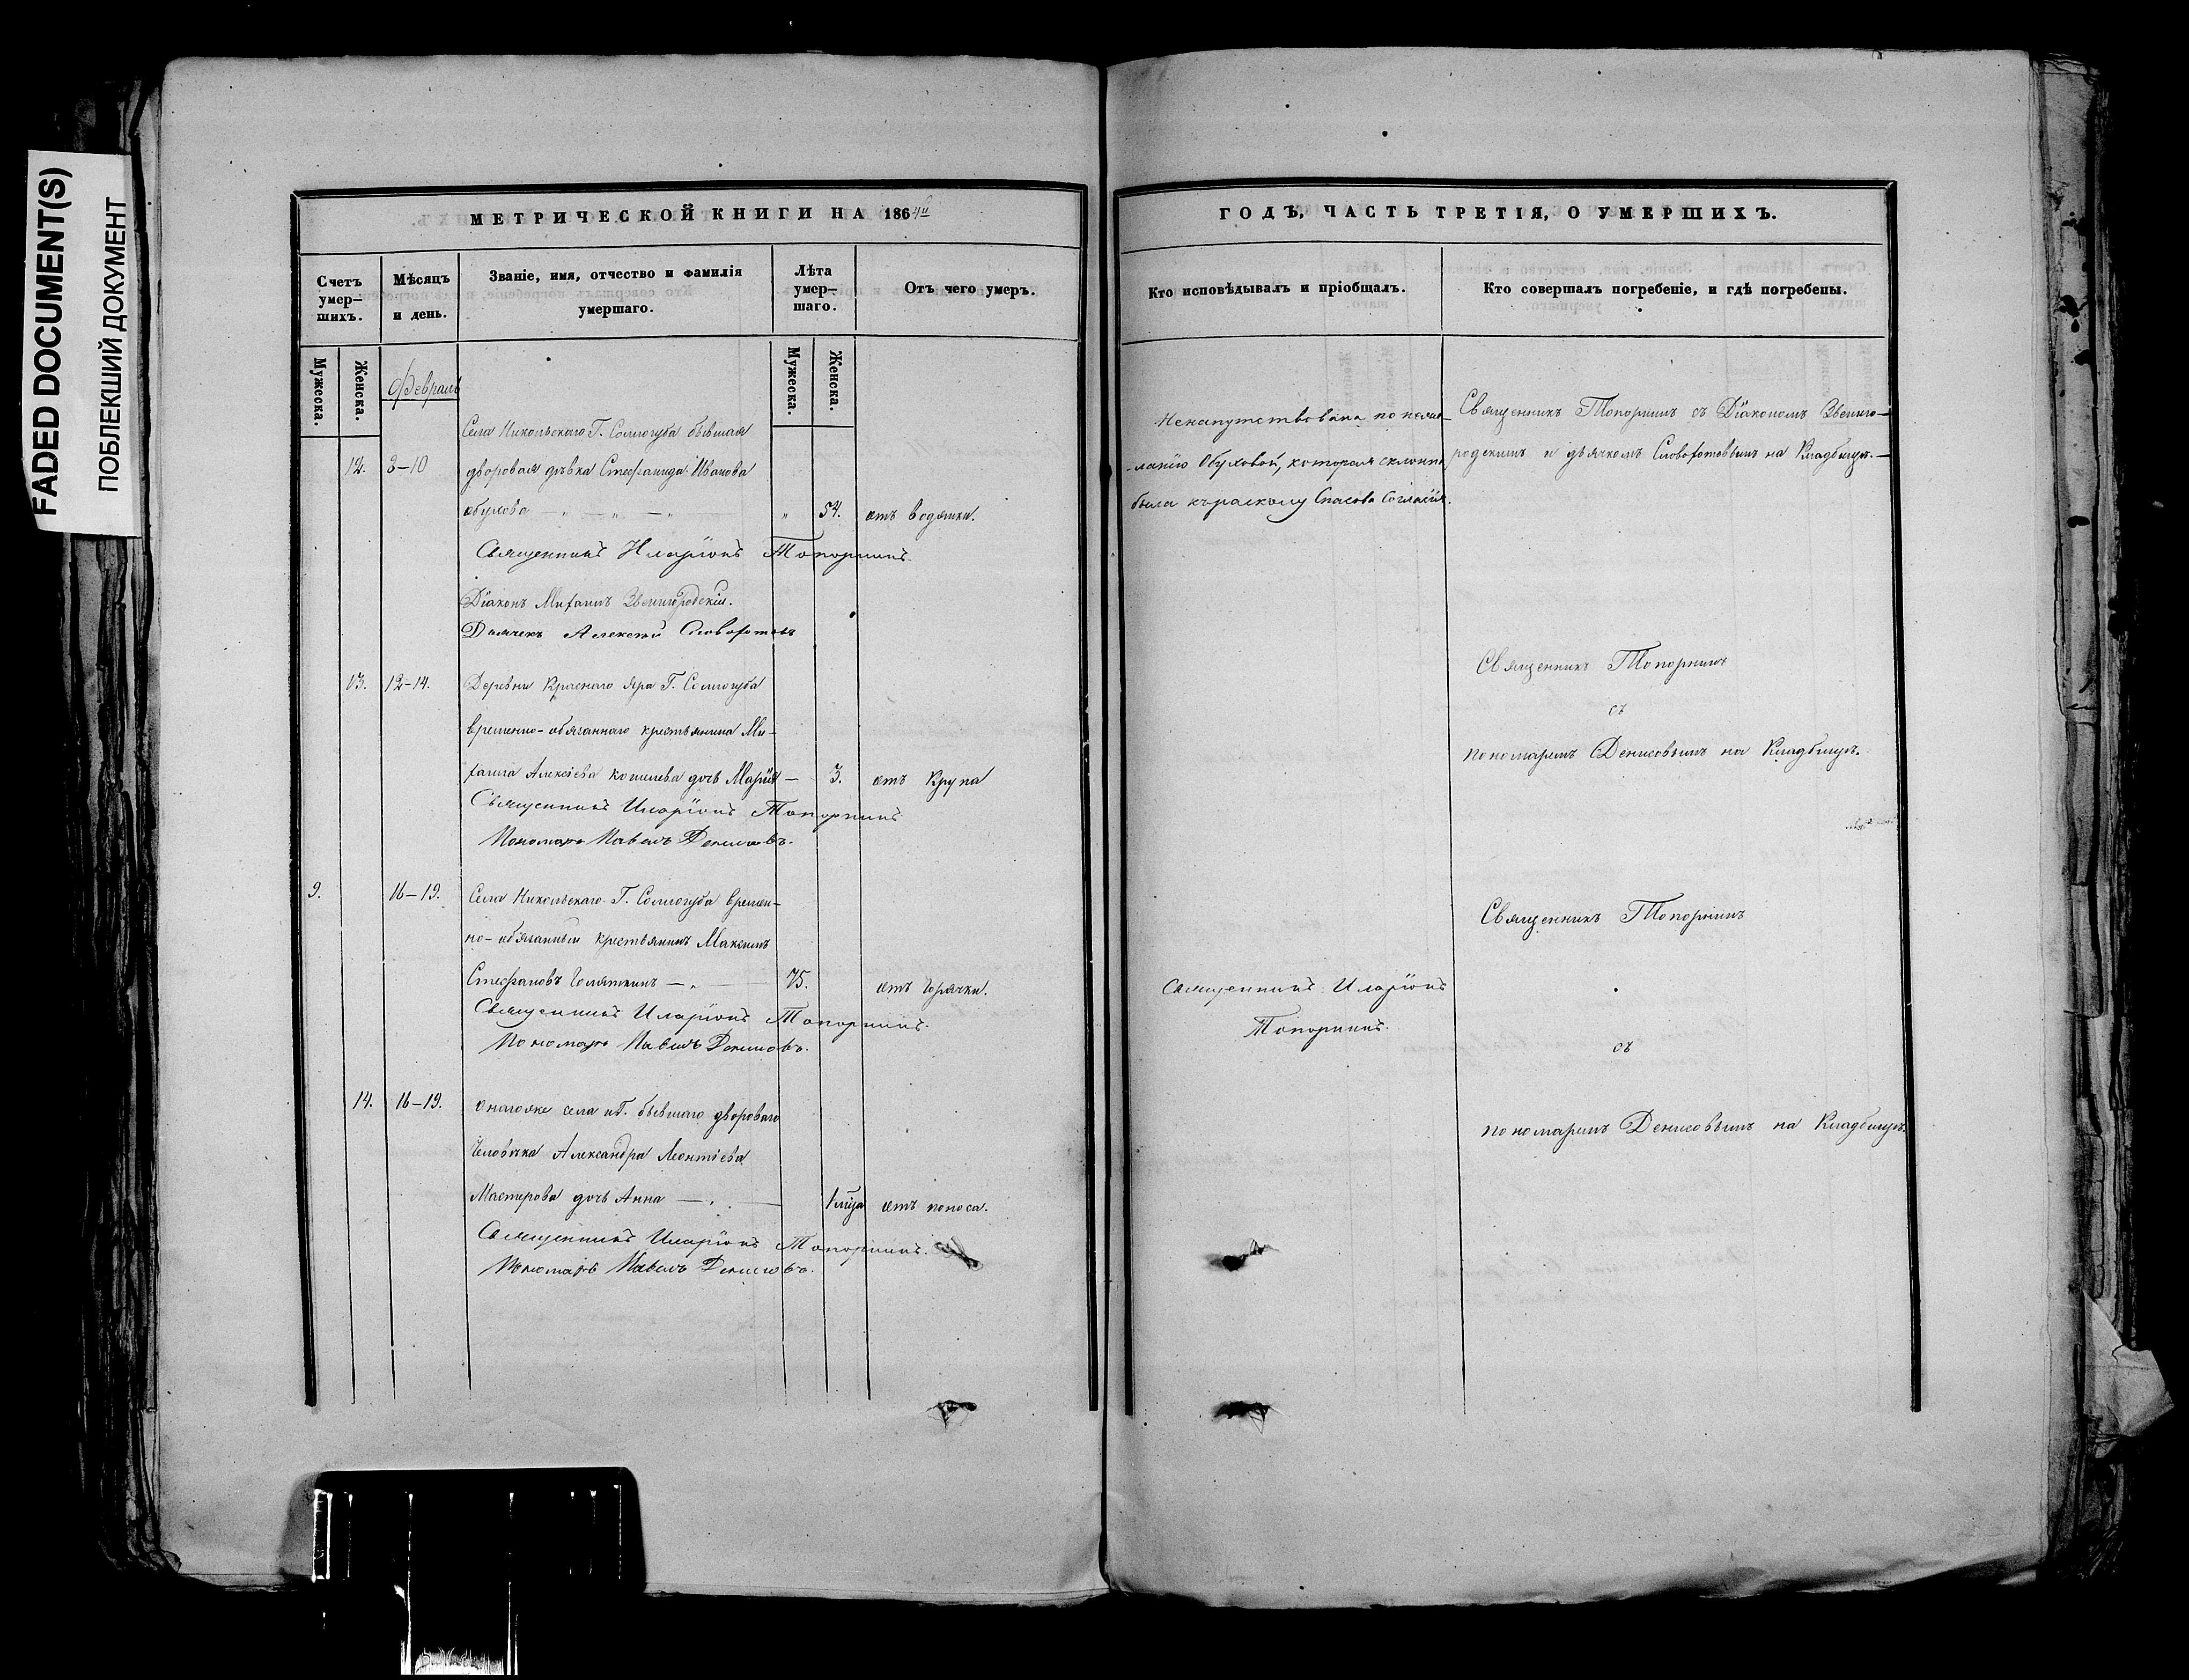 FADED DOCUMENT(S)
ПОБЛЕКШИЙ ДОКУМЕНТ
МЕТРИЧЕСКОЙ КНИГИ НА 1864й
Счетъ умер-шихъ.
Мѣсяцъ и день.
Званіе, имя, отчество и фамилія умершаго.
Лѣта умер-шаго.
Отъ чего умеръ.
Мужеска.
Женска.
Мужеска.
Женска.
Февраль
Села Никольскаго Г. Соллогуба бывшая
12. 8-10 дворовая дѣвка Стефанида Иванова
обухова — „ — „ — „ 54. отъ водянки.
Священникъ Иларіонъ Топорнинъ.
Діаконъ Михаилъ Звенигородскій.
Дьячекъ Алексѣй Словохотовъ
13. 12-14. Деревни Краснаго Яра Г. Соллогуба
временно-обязаннаго крестьянина Ми-
хаила Алексіева кошелева дочь Марія — 3. отъ Крупа
Священникъ Иларіонъ Топорнинъ
Пономарь Павелъ Денисовъ.
9. 16-19. Села Никольскаго Г. Соллогуба времен-
но-обязанный крестьянинъ Максимъ
Стефановъ — „ — 75. отъ горячки.
Священникъ Иларіонъ Топорнинъ.
Пономарь Павелъ Денисовъ.
14. 16-19. онагоже села и Г. бывшаго двороваго
человѣка Александра Леонтіева
Мастерова дочь Анна — „ — 1 мца отъ поноса.
Священникъ Иларіонъ Топорнинъ.
Пономарь Павелъ Денисовъ.
ГОДЪ, ЧАСТЬ ТРЕТІЯ, О УМЕРШИХЪ.
Кто исповѣдывалъ и пріобщалъ.
Кто совершалъ погребеніе, и гдѣ погребены.
Ненапутствована по неже-
ланію Обуховой, которая склонна
была къ расколу Спасова Согласія.
Священникъ Топорнинъ съ Діакономъ Звениго-
родскимъ и дьячкомъ Словохотовымъ на Кладбищѣ.—
Священникъ Топорнинъ
съ
пономаремъ Денисовымъ на Кладбищѣ.
Священникъ Иларіонъ
Топорнинъ.
Священникъ Топорнинъ
съ
пономаремъ Денисовымъ на Кладбищѣ.